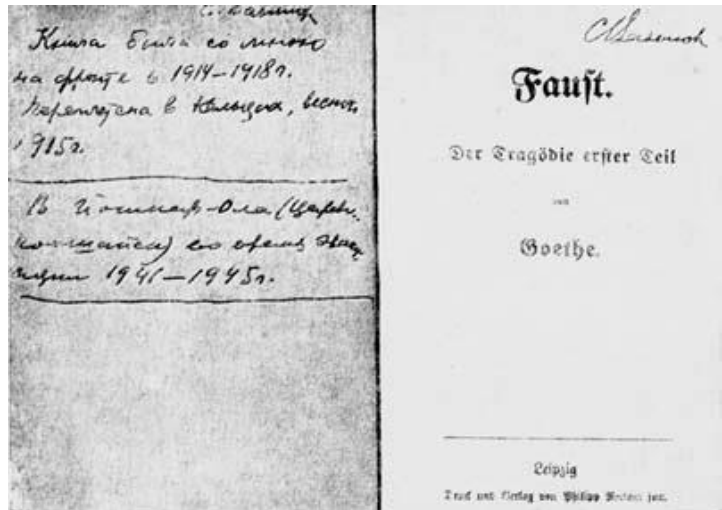 С. Вавилов
Книга была со мною
на фронте в 1914–1918г.
Переплетена в Кельцах, весною
1915г.
В Йошкар-Ола (Царево-
кокшайск) во время эваку-
ации 1941–1945г.
Faust.
Der Tragödie erster Teil
von
Goethe.
Leipzig
Druck und Verlag von Philipp Reclam jun.